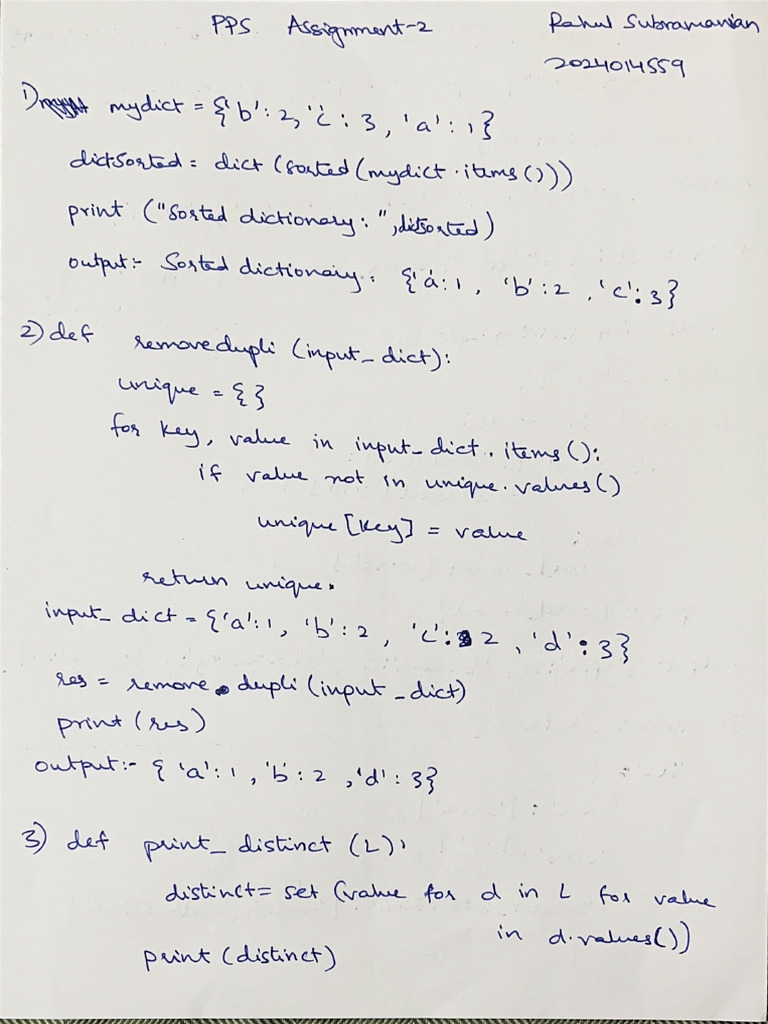 PPS Assignment-2
Rahul Subramanian
2024014559
1) mydict = {'b': 2, 'c': 3, 'a': 1}
dictSorted = dict (sorted (mydict.items()))
print ("Sorted dictionary: ", dictsorted)
output:- Sorted dictionary: {'a: 1, 'b': 2, 'c': 3}
2) def removedupli (input_dict):
unique = {}
for key, value in input_dict.items():
if value not in unique.values()
unique [key] = value
return unique.
input_dict = {'a': 1, 'b': 2, 'c': 2, 'd': 3}
res = remove dupli (input_dict)
print (res)
output:- {'a': 1, 'b: 2, 'd': 3}
3) def print_distinct (L):
distinct = set (value for d in L for value
in d.values())
print (distinct)